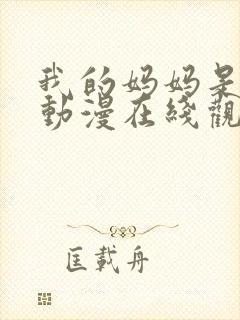 我的妈妈是
動漫在綫觀
匡載舟